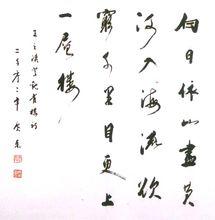 白日依山盡黄
河入海流欲
窮千里目更上
一層樓
王之涣登鹳雀樓詩